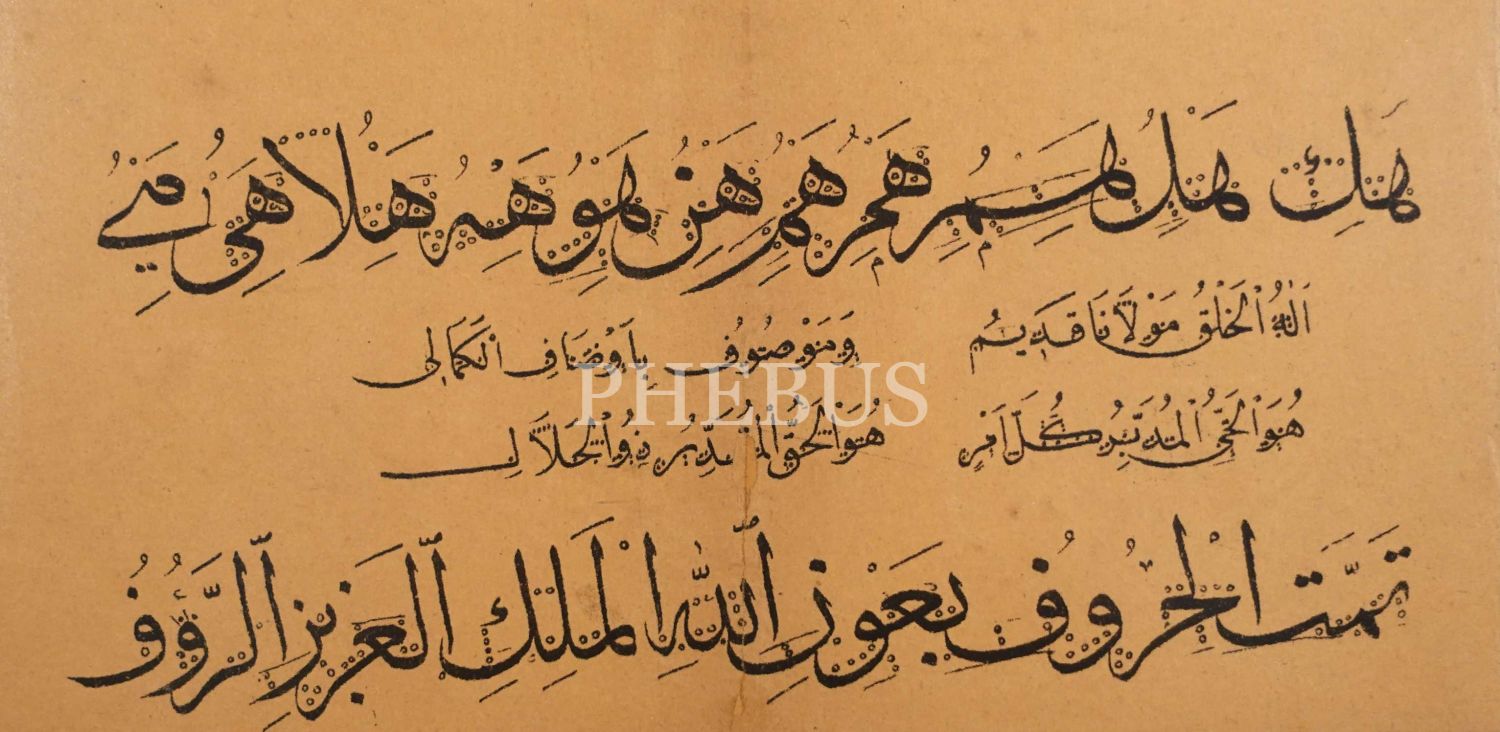 هَكِ هَلِ هَمِ هَمْ هَمُ هَنُ هَوُ هَهُ هَلَا هَيُ
إِلٰهُ الْخَلْقِ مَوْلَانَا قَدِيمُ وَمَوْصُوفٌ بِأَوْصَافِ الْكَمَالِ
هُوَ الْحَيُّ الْمُدَبِّرُ كُلَّ أَمْرٍ هُوَ الْحَقُّ الْمُقَدِّرُ ذُو الْجَلَالِ
PHEBUS
تَمَّتِ الْحُرُوفُ بِعَوْنِ اللّٰهِ الْمَلِكِ الْعَزِيزِ الرَّؤُوفُ